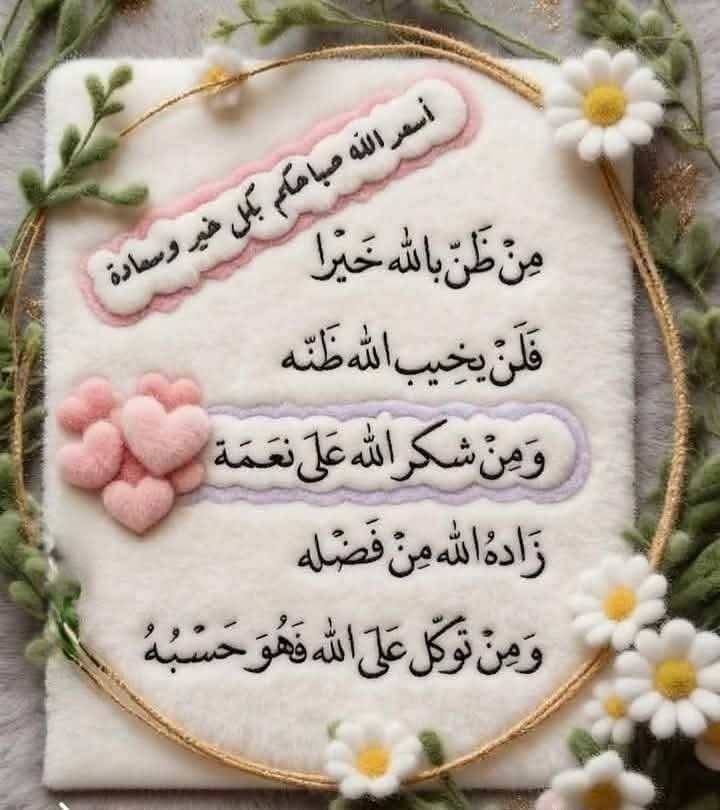 أسعد الله صباحكم بكل خير وسعادة
مِنْ ظَنّ بالله خَيْرا
فَلَنْ يخِيب الله ظَنّه
وَمِنْ شكر الله عَلَى نعَمَة
زَادهُ الله مِنْ فَضْله
وَمِنْ توكّل عَلَى الله فَهُوَ حَسْبُهُ